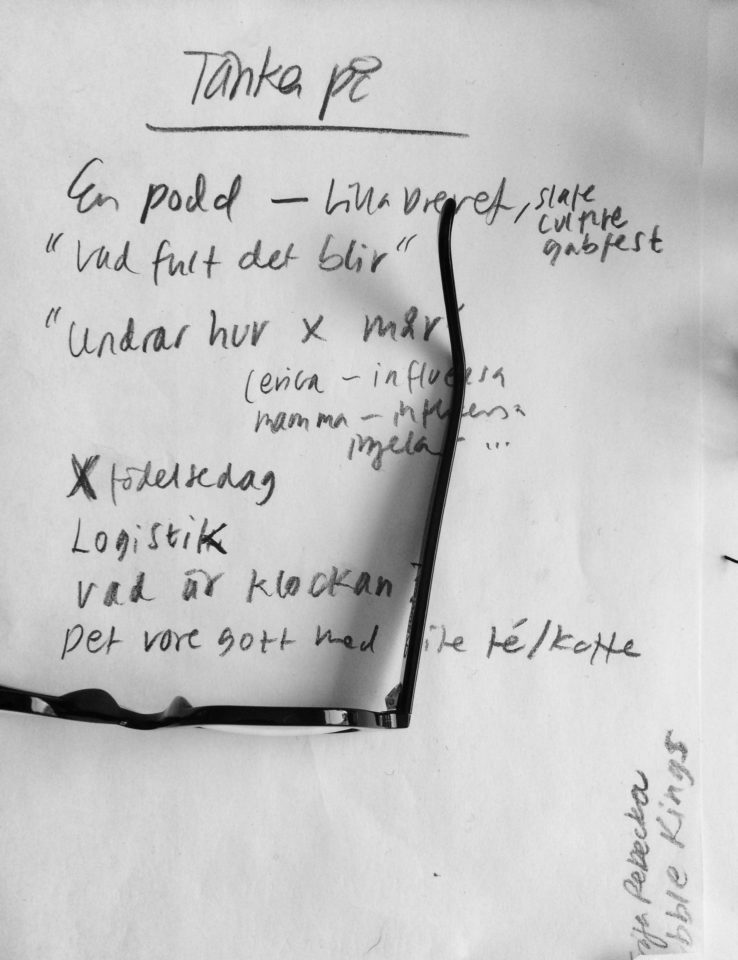 Tänka på
En podd — Lilla Drevet, slate
culture
gabfest
"Vad fult det blir"
"Undrar hur x mår
(erica – influensa
mamma – influensa
...
X födelsedag
Logistik
vad är klockan
Det vore gott med te té/kaffe
Rebecka
bble Kings